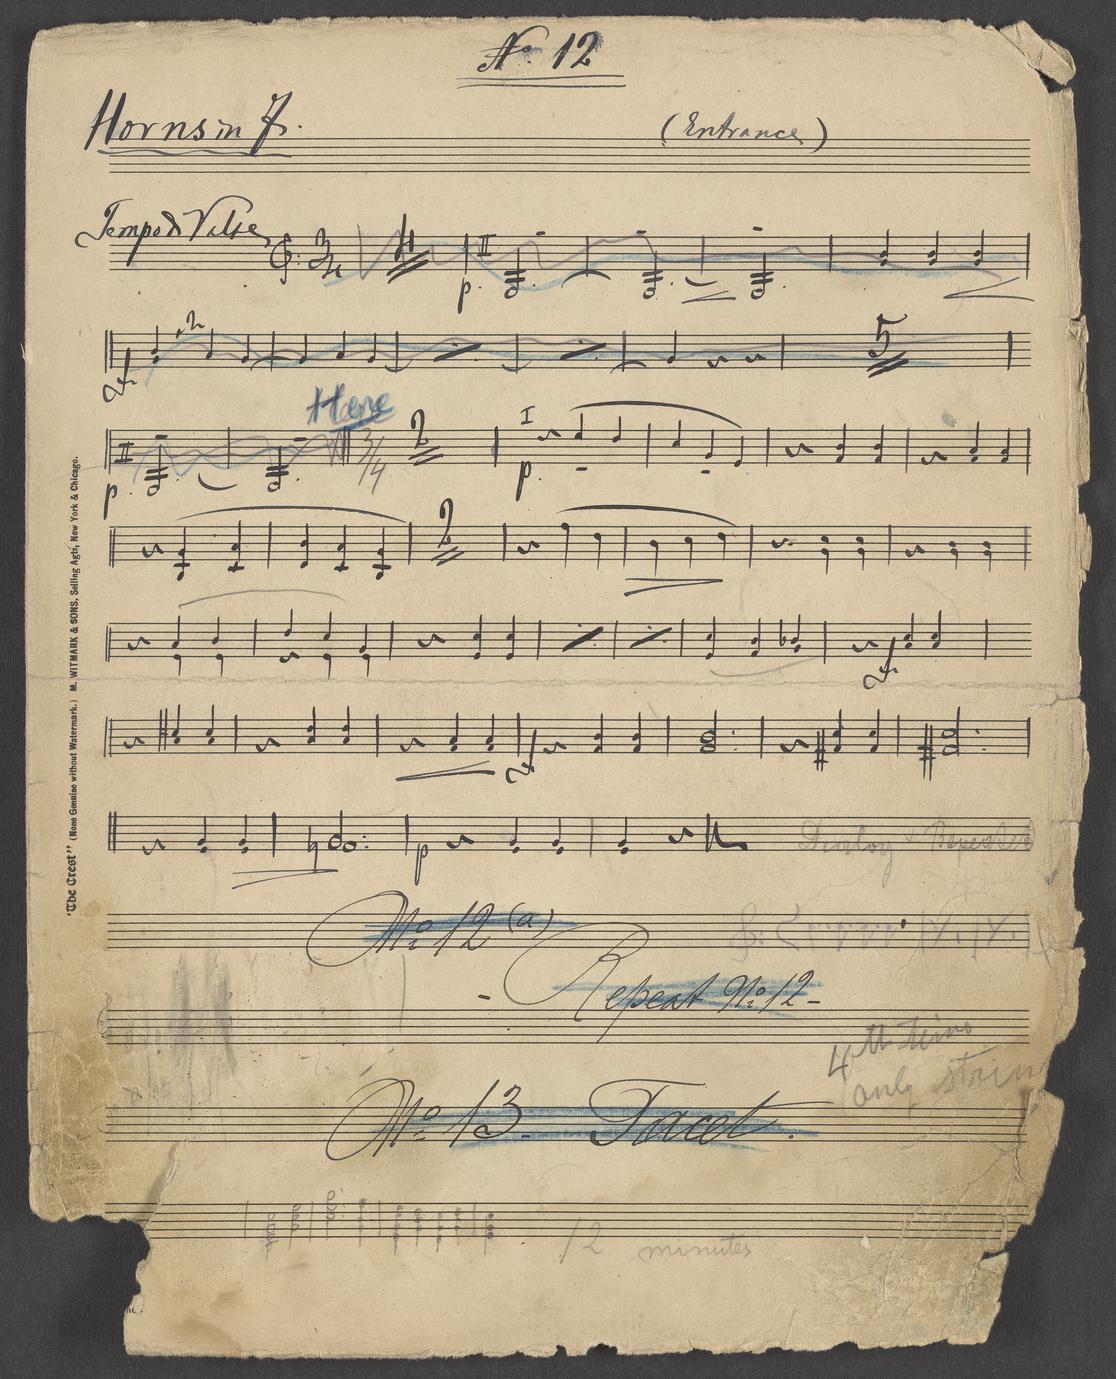 No. 12
Horns in F.
(Entrance)
Tempo di Valse
3/4
4
II
p.
2
5
Here
II
3/4
2
I
p.
p.
2
p
Dialog & Repeated
No. 12 (a)
- Repeat No. 12 -
4th time
only string
No. 13. Tacet.
12 minutes
"The Crest" (None Genuine without Watermark.) M. WITMARK & SONS, Selling Agts, New York & Chicago.